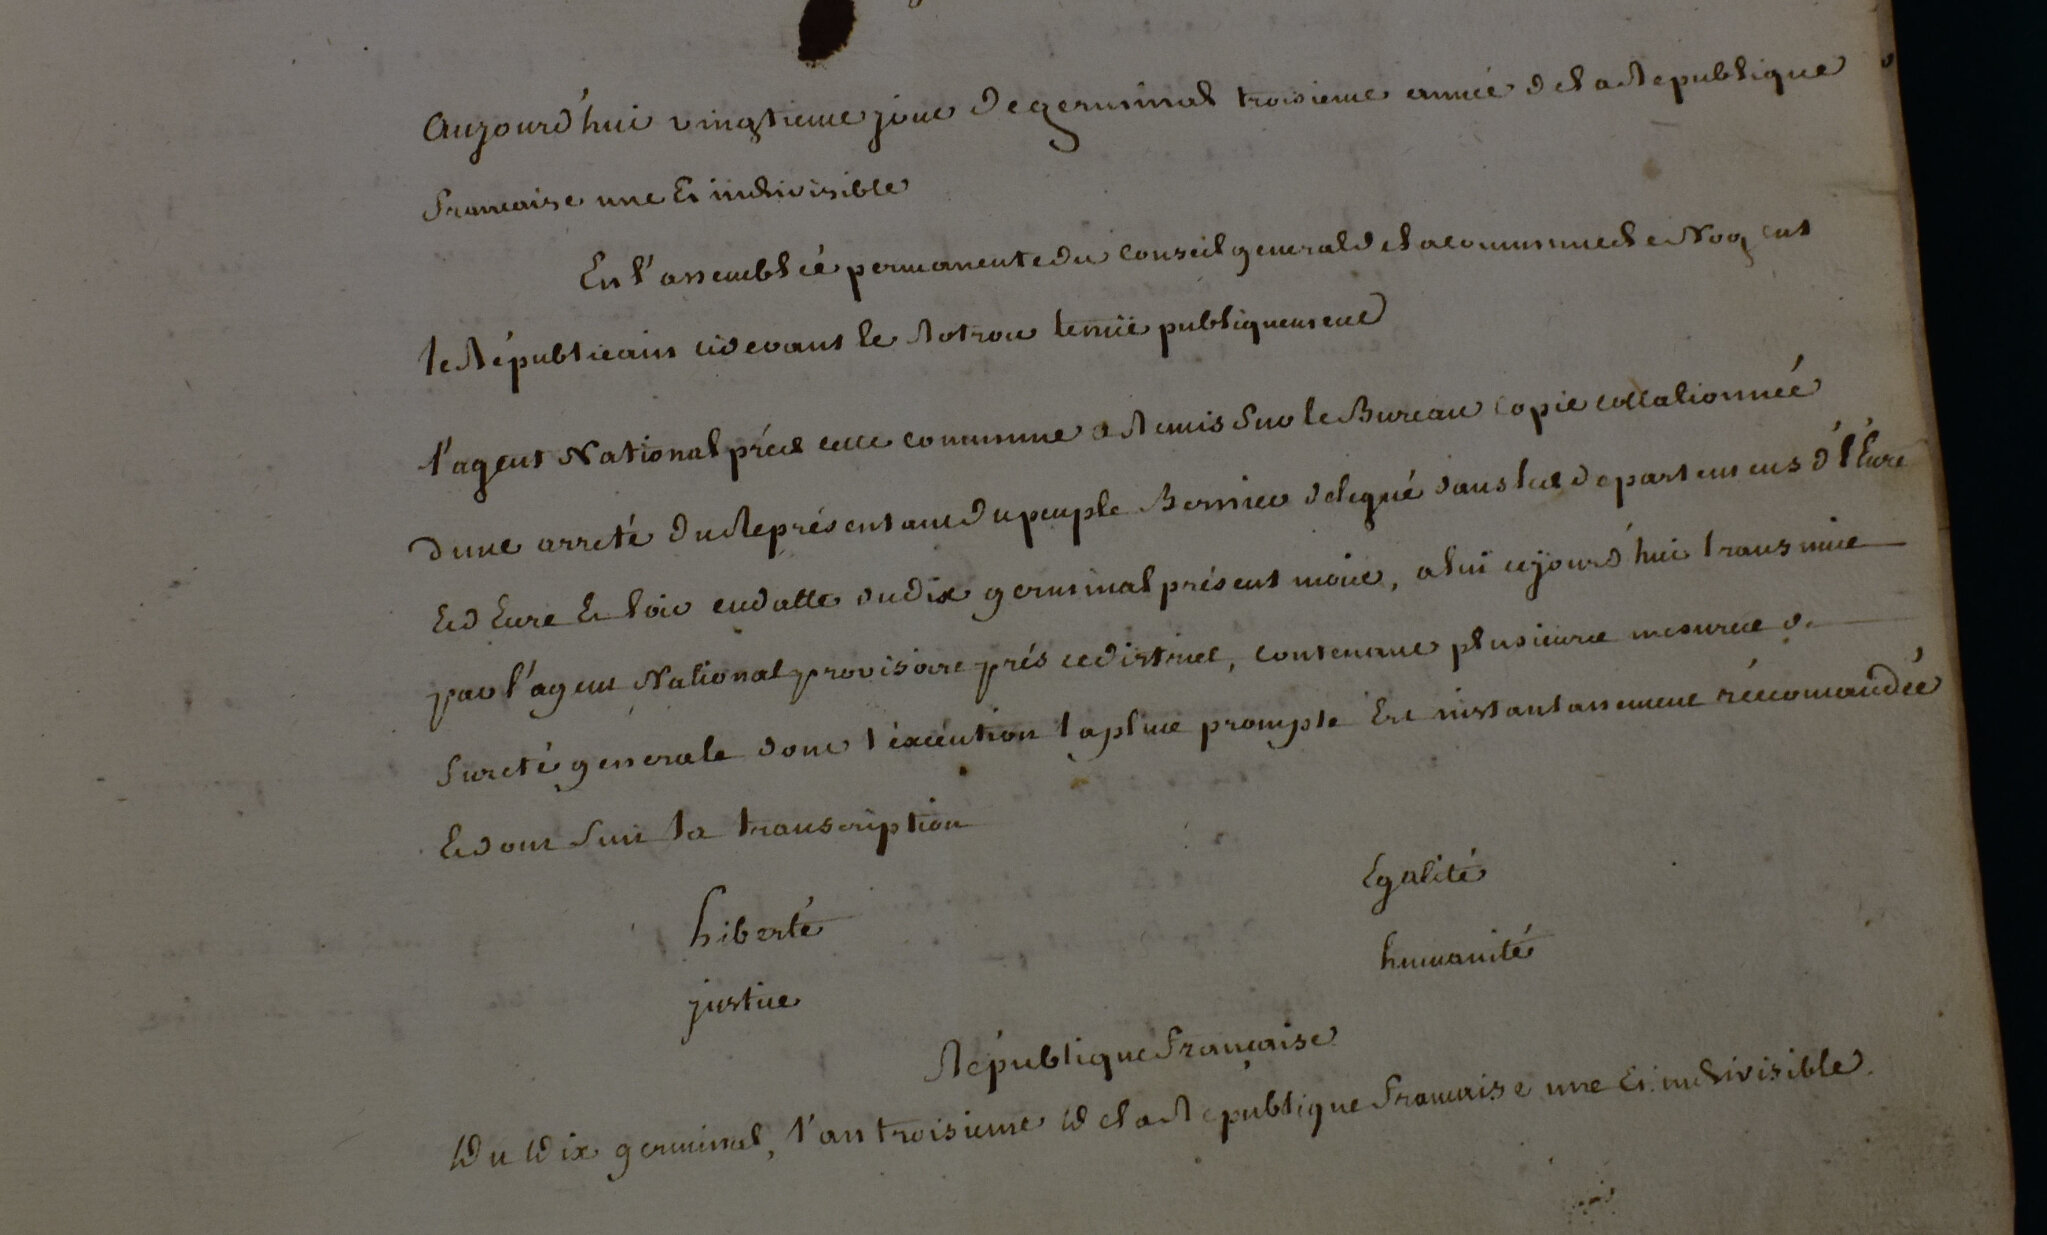 Aujourd'hui vingtieme jour de germinal troisieme année de la Republique
francaise une Et indivisible
En l'assemblée permanente du Conseil general de la commune de Nogent
le Républicain cidevant le Rotrou tenüe publiquement
l'agent National prés cette commune a Remis sur le Bureau copie collationnée
dune arreté du Représentant du peuple Bernier delegué dans les departemens d'l'Eure
Et d'Eure Et loir en datte du dix germinal présent mois, a lui cejourd'hui transmise
par l'agent National provisoire prés ce district, contenant plusieurs mesures de
sureté générale dont l'éxécution la plus prompte Est instantanement réccomandée
Et dont suit la transcription
Liberté Egalité
justice humanité
République francaise
Du Dix germinal, l'an troisieme De la Republique francaise une Et indivisible.